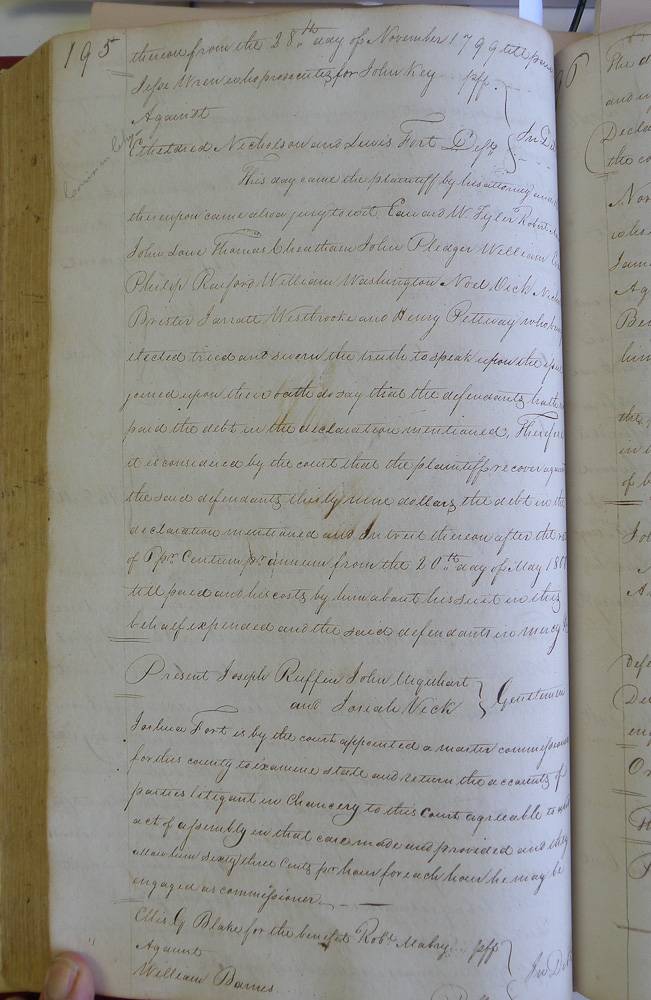 195
thereon from the 28th day of November 1799 till paid
Jesse Wren who prosecutes for John Key plf
Against
In De
Etheldred Nicholson and Lewis Fort Defts
This day came the plaintiff by his attorney and
thereupon came also a jury to wit, Edward W. Tyler Robert
John Lowe Thomas Cheatham John Pledger William
Philip Raiford William Washington Noel Vick
Brister Jarratt Westbrooke and Henry Pettway who
elected tried and sworn the truth to speak upon the
joined upon their oath do say that the defendants hath
paid the debt in the declaration mentioned, Therefore
it is considered by the court that the plaintiff recover again
the said defendants thirty nine dollars the debt in the
declaration mentioned and thereon after the
of pr. Centum pr. annum from the 20th day of May
till paid and his costs by him about his suit in this
behalf expended and the said defendants in mercy &
Present Joseph Ruffin John Urquhart
and Josiah Vick
Gentlemen
Joshua Fort is by the court appointed a master commissioner
for this county to examine state and return the accounts of
parties litigant in Chancery to this Court agreable to
act of assembly in that case made and provided and they
allow him Sixty three Cents pr. hour for each hour he may be
engaged as commissioner
Ellis G Blake for the benefit Robt. Mabry plf
Against
In De
William Barnes
96
The d
and
Decla
the co
Nor
who
Jam
Ag
Be
him
the
in
of b
Joh
A
A
Defe
De
en
Or